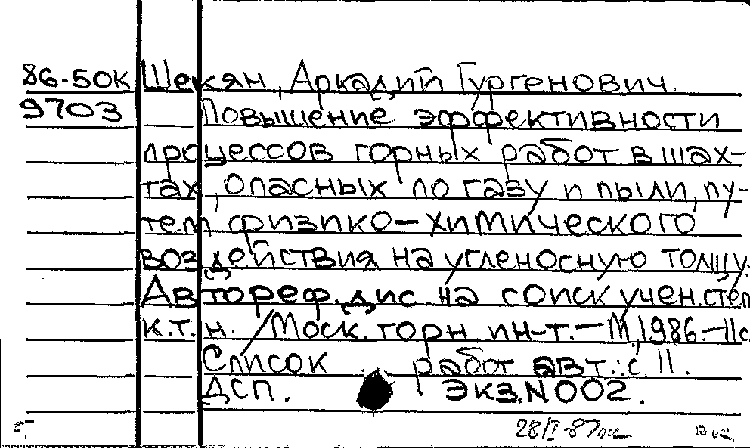 86-50к Шекян, Аркадий Гургенович.
9703 Повышение эффективности
процессов горных работ в шах-
тах, опасных по газу и пыли, пу-
тем физико-химического
воздействия на угленосную толщу.
Автореф. дис. на соиск. учен. степ.
к.т.н. / Моск. горн. ин-т. - М., 1986. - 11с
Список работ авт.: с 11.
ДСП. ЭКЗ. N 002.